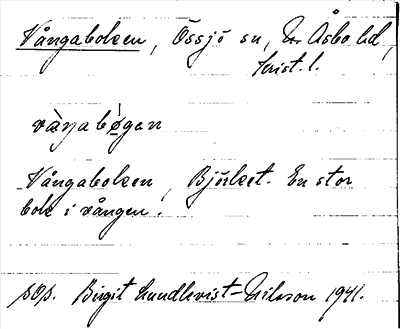 Vångaboken, Össjö sn, N. Åsbo hd,
Krist. l.
vàŋabø̀gen
Vångaboken, Björket. En stor
bok i vången.
SOS. Birgit Lundkvist-Nilsson 1941.